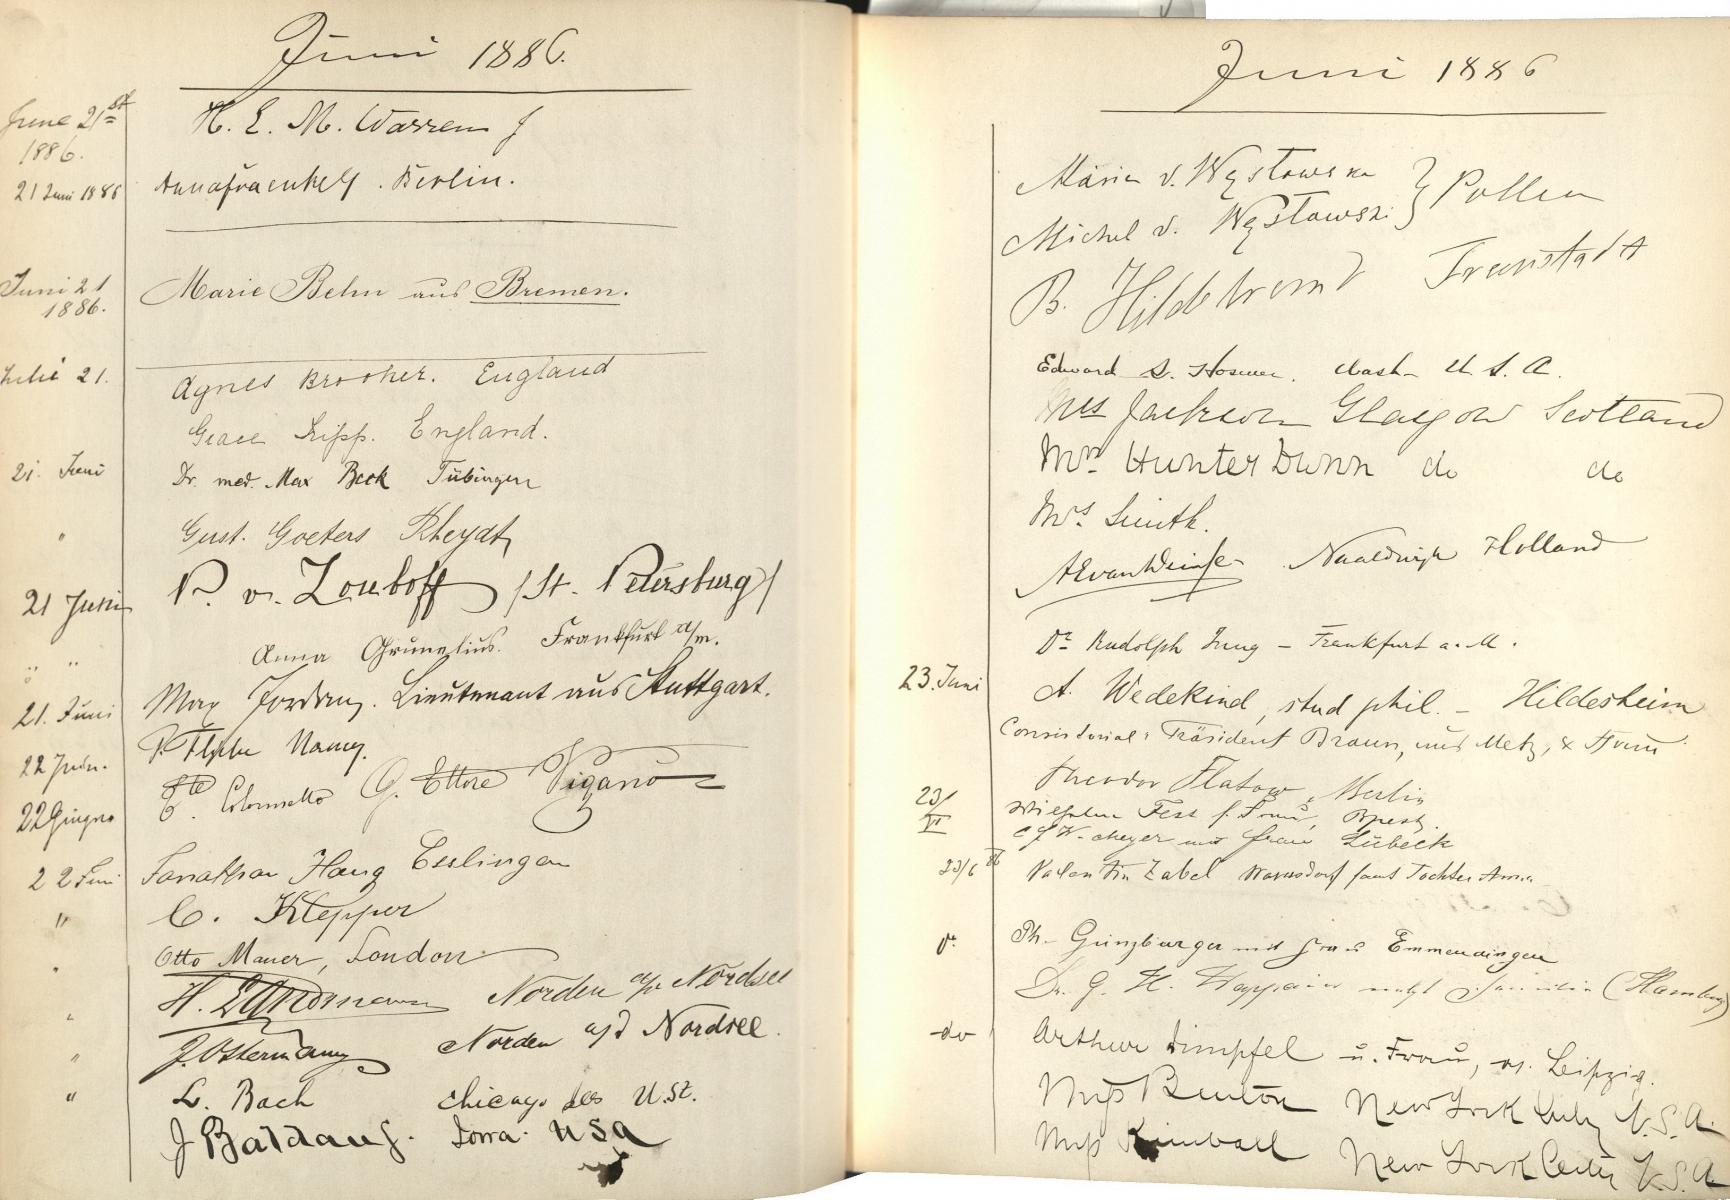 Juni 1886.
June 21st 1886. H. E. M. Warren
21 Juni 1886 Anna Fraenkel. Berlin.
Juni 21 1886. Marie Behn aus Bremen.
21. Agnes Brooker. England
Grace Kipp. England.
21. Juni Dr. med. Max Beck Tübingen
" Gust. Goeters Rheydt
21 Juni P. v. Zouboff /St. Petersburg/
" " Anna Grunelius. Frankfurt a/m.
21. Juni Max Jordan. Lieutenant aus Stuttgart.
22 Juin. Nancy.
22 Giugno Colomnetto G. Ettore Viganò
22 Juni Jonathan Haug Esslingen
" C. Klepper
" Otto Maner, London
" H. Norden a/d Nordsee
" J. Ostermann Norden a/d Nordsee.
" L. Bach Chicago U.St.
J Baldauf. Iowa. USA
Juni 1886
Maria v. Węsławska } Pollen
Michel v. Węsławski
B. Hildebrand Fraustadt
Edward S. Hosmer. Wash. U. S. A.
Mrs Jackson Glasgow Scotland
Mrs Hunter Dunn do do
Mrs Smith.
Naaldwijk Holland
Dr Rudolph Jung – Frankfurt a. M.
23. Juni A. Wedekind, stud phil. – Hildesheim
Consistorial-Präsident Braun, aus Metz, & Frau
Theodor Flatow, Berlin
23/VI Wilhelm Fess Frau,
Meyer und Frau Lübeck
23/6 86 Valentin Zabel Warnsdorf samt Tochter Anna
Ph. Günzburger und Frau Emmendingen
Dr. G. H. nebst Familie (Hamburg)
do Arthur Dimpfel u. Frau, a. Leipzig.
Miss Benton New York City U.S.A.
Miss Kimball New York City U.S.A